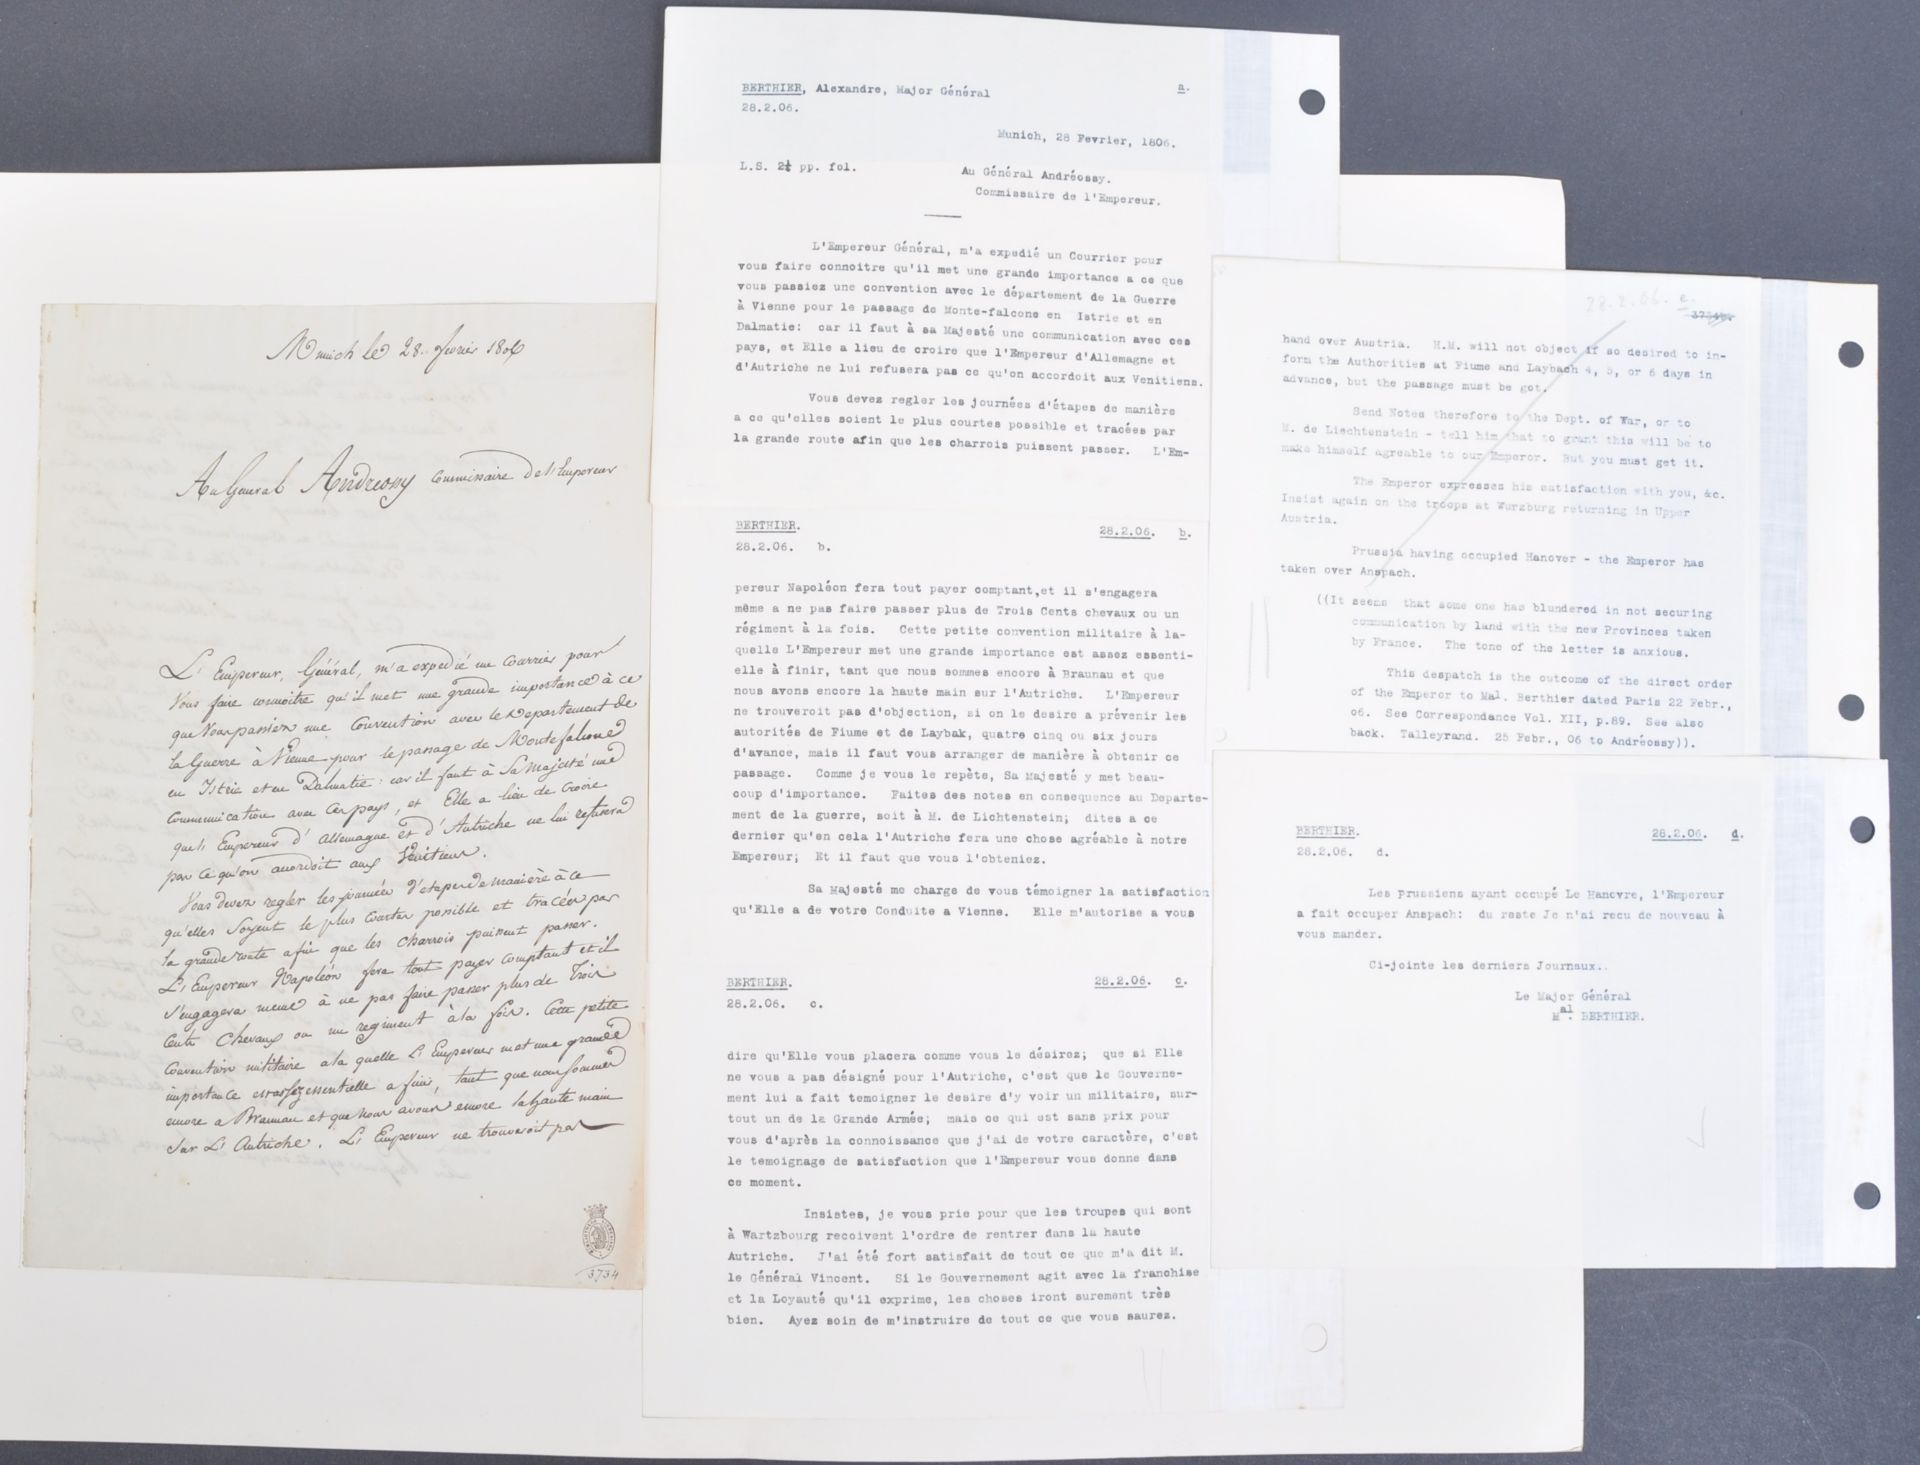 Munich le 28. fevrier 1806
Au General Andreossy Commissaire de l'Empereur
L'Empereur, Général, m'a expedié un Courrier pour
Vous faire connoitre qu'il met une grande importance à ce
que Vous passiez une Convention avec le Departement de
la Guerre à Vienne pour le passage de Montefalcone
en Istrie et en Dalmatie: car il faut à Sa Majesté une
Communication avec ces pays, et Elle a lieu de croire
que l'Empereur d'Allemagne et d'Autriche ne lui refusera
pas ce qu'on accordoit aux Vénitiens.
Vous devez regler les journées d'etapes de manière à ce
qu'elles Soyent le plus Courtes possible et tracées par
la grande route afin que les charrois puissent passer.
L'Empereur Napoléon fera tout payer comptant et il
S'engagera meme à ne pas faire passer plus de Trois
Cents Chevaux ou un regiment à la fois. Cette petite
Convention militaire a la quelle L'Empereur met une grande
importance est assez essentielle a finir, tant que nous Sommes
encore a Braunau et que nous avons encore la haute main
Sur L'Autriche. L'Empereur ne trouveroit pas
3734
BERTHIER, Alexandre, Major Général a.
28.2.06.
Munich, 28 Fevrier, 1806.
L.S. 2¼ pp. fol. Au Général Andréossy.
Commissaire de l'Empereur.
L'Empereur Général, m'a expedié un Courrier pour
vous faire connoitre qu'il met une grande importance a ce que
vous passiez une convention avec le département de la Guerre
à Vienne pour le passage de Monte-falcone en Istrie et en
Dalmatie: car il faut à sa Majesté une communication avec ces
pays, et Elle a lieu de croire que l'Empereur d'Allemagne et
d'Autriche ne lui refusera pas ce qu'on accordoit aux Venitiens.
Vous devez regler les journées d'étapes de manière
a ce qu'elles soient le plus courtes possible et tracées par
la grande route afin que les charrois puissent passer. L'Em-
BERTHIER. 28.2.06. b.
28.2.06. b.
pereur Napoléon fera tout payer comptant,et il s'engagera
même a ne pas faire passer plus de Trois Cents chevaux ou un
régiment à la fois. Cette petite convention militaire à la-
quelle L'Empereur met une grande importance est assez essenti-
elle à finir, tant que nous sommes encore à Braunau et que
nous avons encore la haute main sur l'Autriche. L'Empereur
ne trouveroit pas d'objection, si on le desire a prévenir les
autorités de Fiume et de Laybak, quatre cinq ou six jours
d'avance, mais il faut vous arranger de manière à obtenir ce
passage. Comme je vous le repète, Sa Majesté y met beau-
coup d'importance. Faites des notes en consequence au Departe-
ment de la guerre, soit à M. de Lichtenstein; dites a ce
dernier qu'en cela l'Autriche fera une chose agréable à notre
Empereur; Et il faut que vous l'obteniez.
Sa Majesté me charge de vous témoigner la satisfaction
qu'Elle a de votre Conduite a Vienne. Elle m'autorise a vous
BERTHIER. 28.2.06. c.
28.2.06. c.
dire qu'Elle vous placera comme vous le désirez; que si Elle
ne vous a pas désigné pour l'Autriche, c'est que le Gouverne-
ment lui a fait temoigner le desire d'y voir un militaire, sur-
tout un de la Grande Armée; mais ce qui est sans prix pour
vous d'après la connoissance que j'ai de votre caractère, c'est
le temoignage de satisfaction que l'Empereur vous donne dans
ce moment.
Insistes, je vous prie pour que les troupes qui sont
à Wartzbourg recoivent l'ordre de rentrer dans la haute
Autriche. J'ai été fort satisfait de tout ce que m'a dit M.
le Général Vincent. Si le Gouvernement agit avec la franchise
et la Loyauté qu'il exprime, les choses iront surement très
bien. Ayez soin de m'instruire de tout ce que vous saurez.
28.2.06. e.
hand over Austria. H.M. will not object if so desired to in-
form the Authorities at Fiume and Laybach 4, 5, or 6 days in
advance, but the passage must be got.
Send Notes therefore to the Dept. of War, or to
M. de Liechtenstein - tell him that to grant this will be to
make himself agreable to our Emperor. But you must get it.
The Emperor expresses his satisfaction with you, &c.
Insist again on the troops at Wurzburg returning in Upper
Austria.
Prussia having occupied Hanover - the Emperor has
taken over Anspach.
((It seems that some one has blundered in not securing
communication by land with the new Provinces taken
by France. The tone of the letter is anxious.
This despatch is the outcome of the direct order
of the Emperor to Mal. Berthier dated Paris 22 Febr.,
06. See Correspondance Vol. XII, p.89. See also
back. Talleyrand. 25 Febr., 06 to Andréossy)).
BERTHIER. 28.2.06. d.
28.2.06. d.
Les Prussiens ayant occupé Le Hanovre, l'Empereur
a fait occuper Anspach: du reste Je n'ai recu de nouveau à
vous mander.
Ci-jointe les derniers Journaux..
Le Major Général
Mal. BERTHIER.